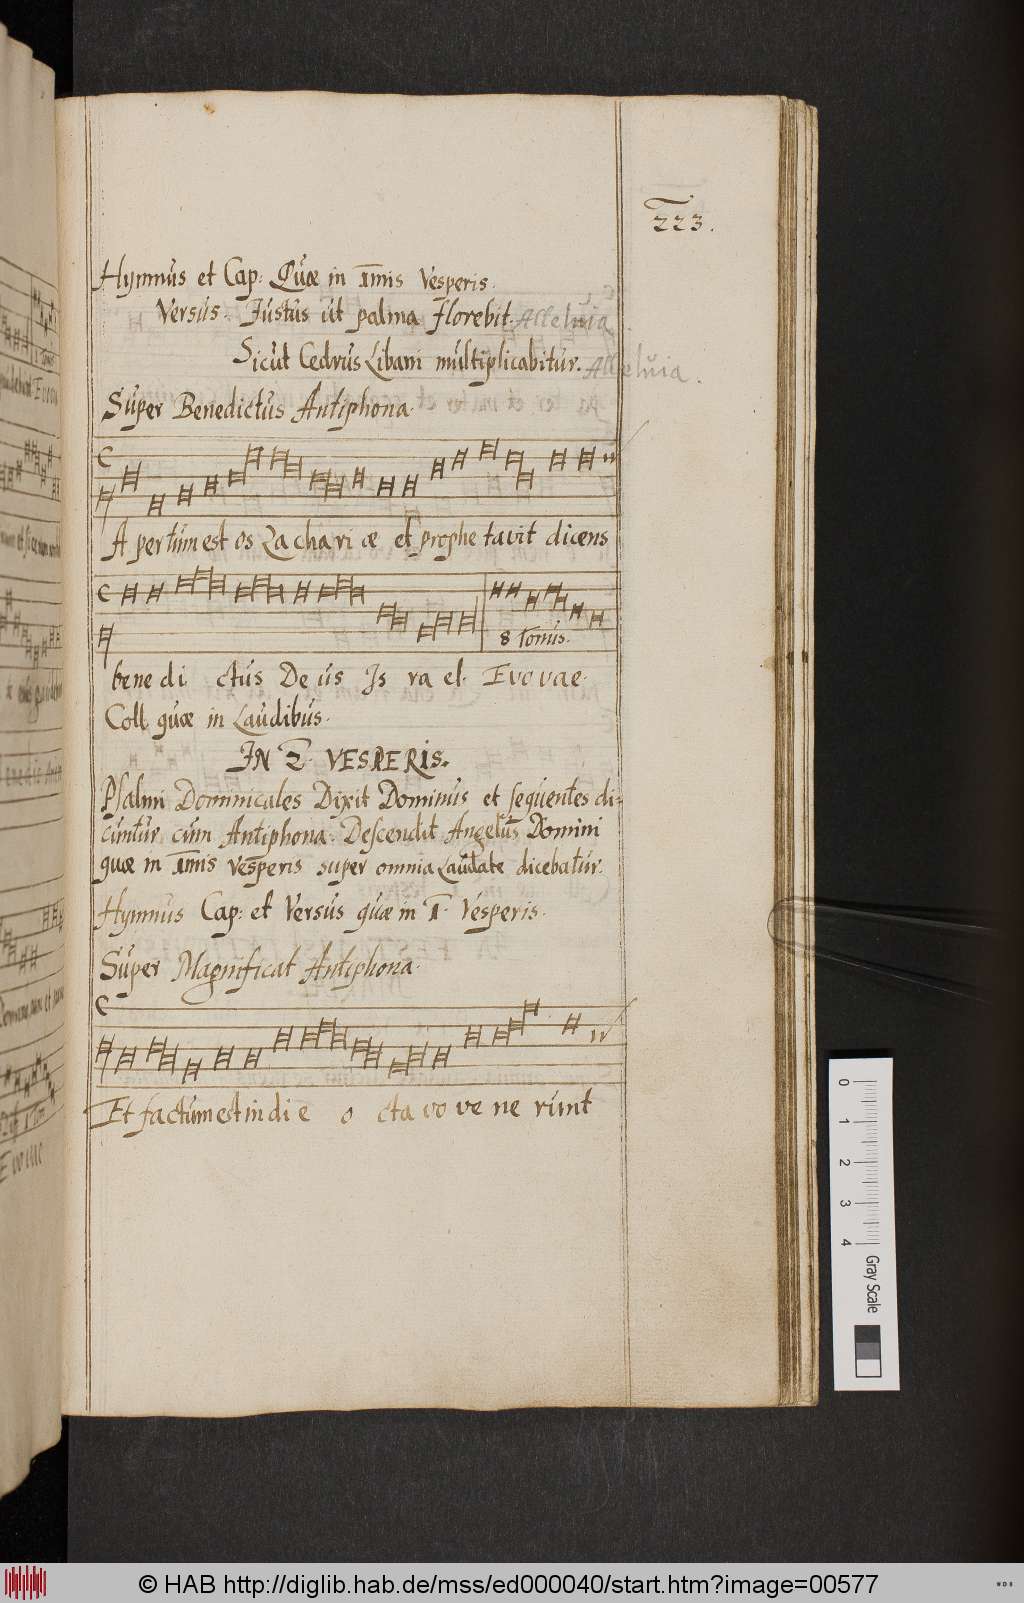 223.
Hymnus et Cap: Quæ in Imis Vesperis.
Versus. Justus ut palma Florebit. Alleluia
Sicut Cedrus Libani multiplicabitur. Alleluia.
Super Benedictus Antiphona.
Apertum est os Zachariæ et prophetavit dicens
8 Tonus.
benedictus Deus Israel. Evovae.
Coll quæ in Laudibus.
IN 2. VESPERIS.
Psalmi Dominicales Dixit Dominus et sequentes di-
cuntur cum Antiphona. Descendit Angelus Domini
quæ in Imis Vesperis super omnia Laudate dicebatur.
Hymnus Cap: et Versus quæ in I. Vesperis.
Super Magnificat Antiphona.
Et factum est in die octavo venerunt
0 1 2 3 4 Gray Scale
© HAB http://diglib.hab.de/mss/ed000040/start.htm?image=00577